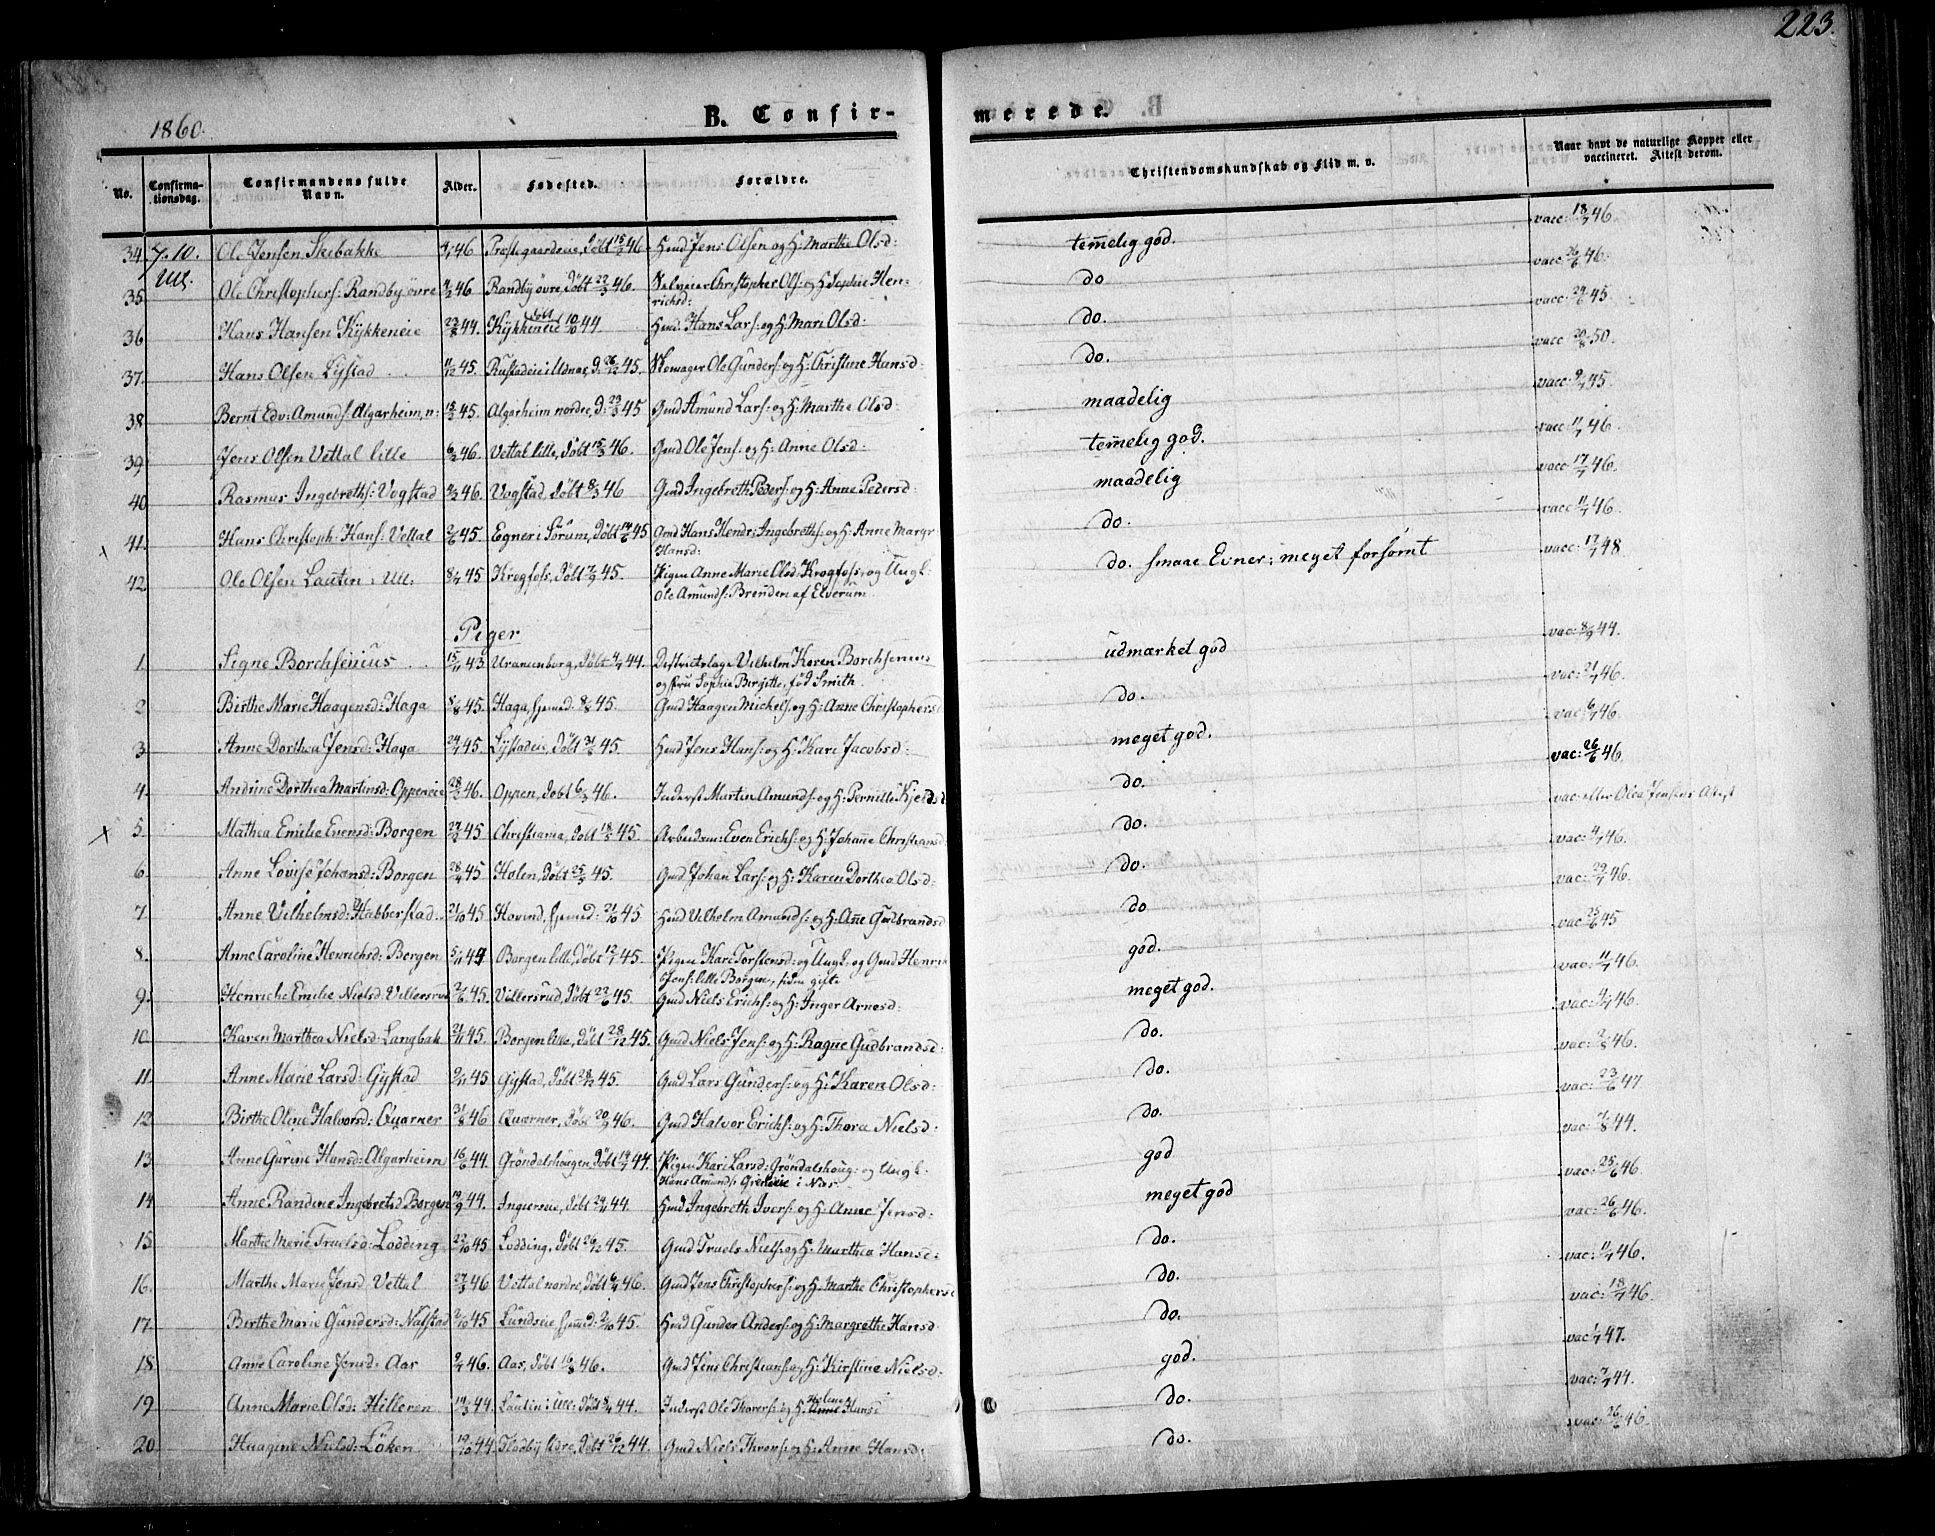 223.
1860.
B. Confir-
merede.
No.
Confirma-
tionsdag.
Confirmandens fulde
Navn.
Alder.
Fødested.
Forældre.
Christendomskundskab og Flid m. v.
Naar havt de naturlige Kopper eller
vaccineret. Attest derom.
34. 7.10. Ole Jensen Skibakke 46 Præstegaardseie, döbt 15/3 46 Hmd Jens Olsen og H: Marthe Olsd: temmelig god. vacc: 18/7 46.
Ull.
35. Ole Christophers: Randby övre 46 Randby övre, döbt 22/3 46. Christopher Ols: og H: Sophie Hen- do vacc: 26/6 46.
richsd:
36 Hans Hansen Kykkeneie 23/8 44. Kykkeneie döbt 10/10 44. Hmd: Hans Lars: og H: Mari Olsd: do. vacc: 45.
37. Hans Olsen Lystad 11/12 45. Rustadeie i Udnæs, d: 26/12 45. Skomager Ole Gunders: og H: Christine Hansd: do. vacc: 20/8 50.
38 Bernt Edv: Amunds: Algarheim, n: 45. Algarheim nordre, d: 23/3 45 Gmd Amund Lars: og H: Marthe Olsd: maadelig vacc: 9/7 45.
39. Jens Olsen Vettal lille 6/2 46. Vettal lille, döbt 15/3 46. Gmd Ole Jens: og H: Anne Olsd: temmelig god. vacc: 11/7 46.
40 Rasmus Ingebreths: Vogstad 46. Vogstad, döbt 8/3 46 Gmd Ingebreth Peders: og H: Anne Pedersd: maadelig vacc: 17/7 46.
41. Hans Christoph: Hans: Vettal 2/6 45. Egner i Sörum, döbt 45 Gmd Hans Hendr: Ingebreths: og H: Anne Margr: do. vacc: 11/7 46.
x Hansd:
42. Ole Olsen Lautin i Ull: 8/7 45 Krogfoss, döbt 45. Pigen Anne Marie Olsd: Krogfoss, og Ungk: do. smaae Evner; meget forsømt vacc: 17/7 48.
Ole Amunds: Brenden af Elverum
Piger
1. Signe Borchsenius 15/11 43. Uranienborg, döbt 4/7 44. Districtslæge Vilhelm Koren Borchsenius udmærket god vac: 8/9 44.
og Fru Sophie Birgitte, föd Smith.
2 Birthe Marie Haagensd: Haga 8/8 45. Haga, hjemed: 8/8 45. Gmd Haagen Mickels: og H: Anne Christophersd do. vac: 21/7 46.
3. Anne Dorthea Jensd: Haga 45. Lystadeie, döbt 45. Hmd Jens Hans: og H: Kari Jacobsd: meget god. vac: 6/7 46.
4. Andrine Dorthea Martinsd: Oppeneie 28/2 46. Oppen, döbt 6/3 46. Inderst Martin Amunds: og H: Pernille Kjelds do. vac: 26/6 46.
x 5. Mathea Emilie Evensd: Borgen 45. Christiania, döbt 18/5 45. Arbeidsm: Even Erichs: og H: Johanne Christiansd do. vac: efter Olea Jensens Attest
6. Anne Lovise Johansd: Borgen 28/4 45 Holen, döbt 25/5 45. Gmd Johan Lars: og H: Karen Dorthea Olsd: do. vac: 4/7 46.
7. Anne Vilhelmsd: Habberstad 21/10 45 Hovind, hjemed: 21/10 45. Hmd Vilhelm Amunds: og H: Anne Gudbrandsd do vac: 29/7 46.
8. Anne Caroline Henrichsd: Borgen 5/11 44 Borgen lille, döbt 12/1 45. Pigen Kari Torstensd: og Ungk: og Gmd Henrik god. vac: 25/6 45
Jens: lille Borgen, siden gifte
9. Henriche Emilie Nielsd: Villersrud 2/6 45. Villersrud, döbt 22/6 45. Gmd Niels Erichs: og H: Inger Arnesd: meget god. vac: 11/7 46.
10. Karen Marthea Nielsd: Langbak 21/11 45. Borgen lille, döbt 28/12 45. Gmd Niels Jens: og H: Ragne Gudbrandsd: do. vac: 4/7 46.
11. Anne Marie Larsd: Gystad 45. Gystad, döbt 28/12 45. Gmd Lars Gunders: og H: Karen Olsd: do. vac: 2/8 46.
12. Birthe Oline Halvorsd: Quærner 31/8 46 Quærner, döbt 20/9 46. Gmd Halvor Erichs: og H: Thora Nielsd: do. vac: 23/6 47.
13 Anne Gurine Hansd: Algarheim 16/6 44. Gröndalshougen, döbt 14/7 44. Pigen Kari Larsd: Gröndalshoug: og Ungk: god vac: 7/8 44.
Hans Amunds: i Næs
14 Anne Randine Ingebretsd: Borgen 19/9 44. döbt 24/11 44. Hmd Ingebreth Ivers: og H: Anne Jensd: meget god vac: 25/6 46.
15. Marthe Marie Truelsd: Lodding 22/10 45 Lodding, döbt 26/12 45. Gmd Truels Niels: og H: Marthea Hansd: do. vac: 26/6 46.
16. Marthe Marie Jensd: Vettal 27/3 46 Vettal nordre, döbt 6/4 46. Gmd Jens Christophers: og H: Marthe Christophersd do. vac: 11/7 46.
17. Berthe Marie Gundersd: Nafstad 2/10 45 Lundseie hjemmed: 2/10 45. Hmd Gunder Anders: og H: Margrethe Hansd do. vac: 18/7 46.
18 Anne Caroline Jensd: Aas 46. Aas, döbt 46. Gmd Jens Christians: og H: Kirstine Nielsd: god. vac: 1/7 47.
19. Anne Marie Olsd: Hilleren 14/3 44. Lautin i Ull: döbt 8/4 44. Inderst Ole Thorers: og H: Anne Hansd do. vac: 7/7 44.
20. Haagine Nielsd: Löken 19/10 44. Flodby lidre, döbt 26/12 44. Gmd Niels Throns: og H: Anne Hansd: do. vac: 26/6 46.